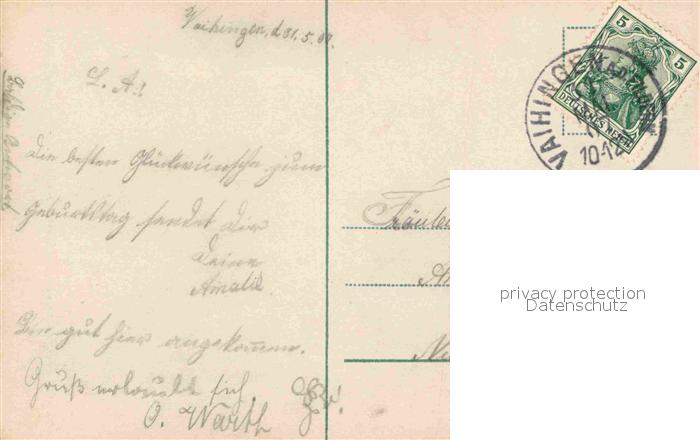 Vaihingen, d 31. 5. 09.
L. A.!
Die besten Glückwünsche zum
Geburtstag sendet Dir
Deine
Amalie
Bin gut hier angekommen.
Gruß erlaubt sich
O. Warth
Fräulein
5
5
DEUTSCHES REICH
VAIHINGEN
10-12
privacy protection
Datenschutz